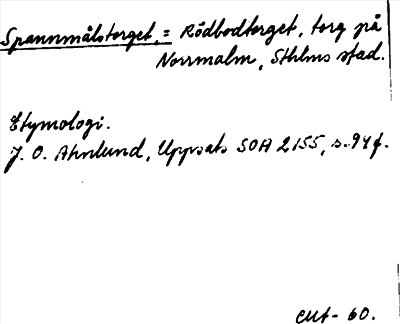 Spannmålstorget, = Rödbodtorget, torg på
Norrmalm, Sthlms stad.
Etymologi.
J. O. Ahnlund, Uppsats SOA 2155, s. 94 f.
CMt - 60.